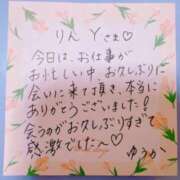 りん Yさま♡
今日は、お仕事が
お忙しい中、お久しぶりに
会いに来て頂き、本当に
ありがとうございました!
会うのがお久しぶりすぎて
感激でした〜♡
ゆうか